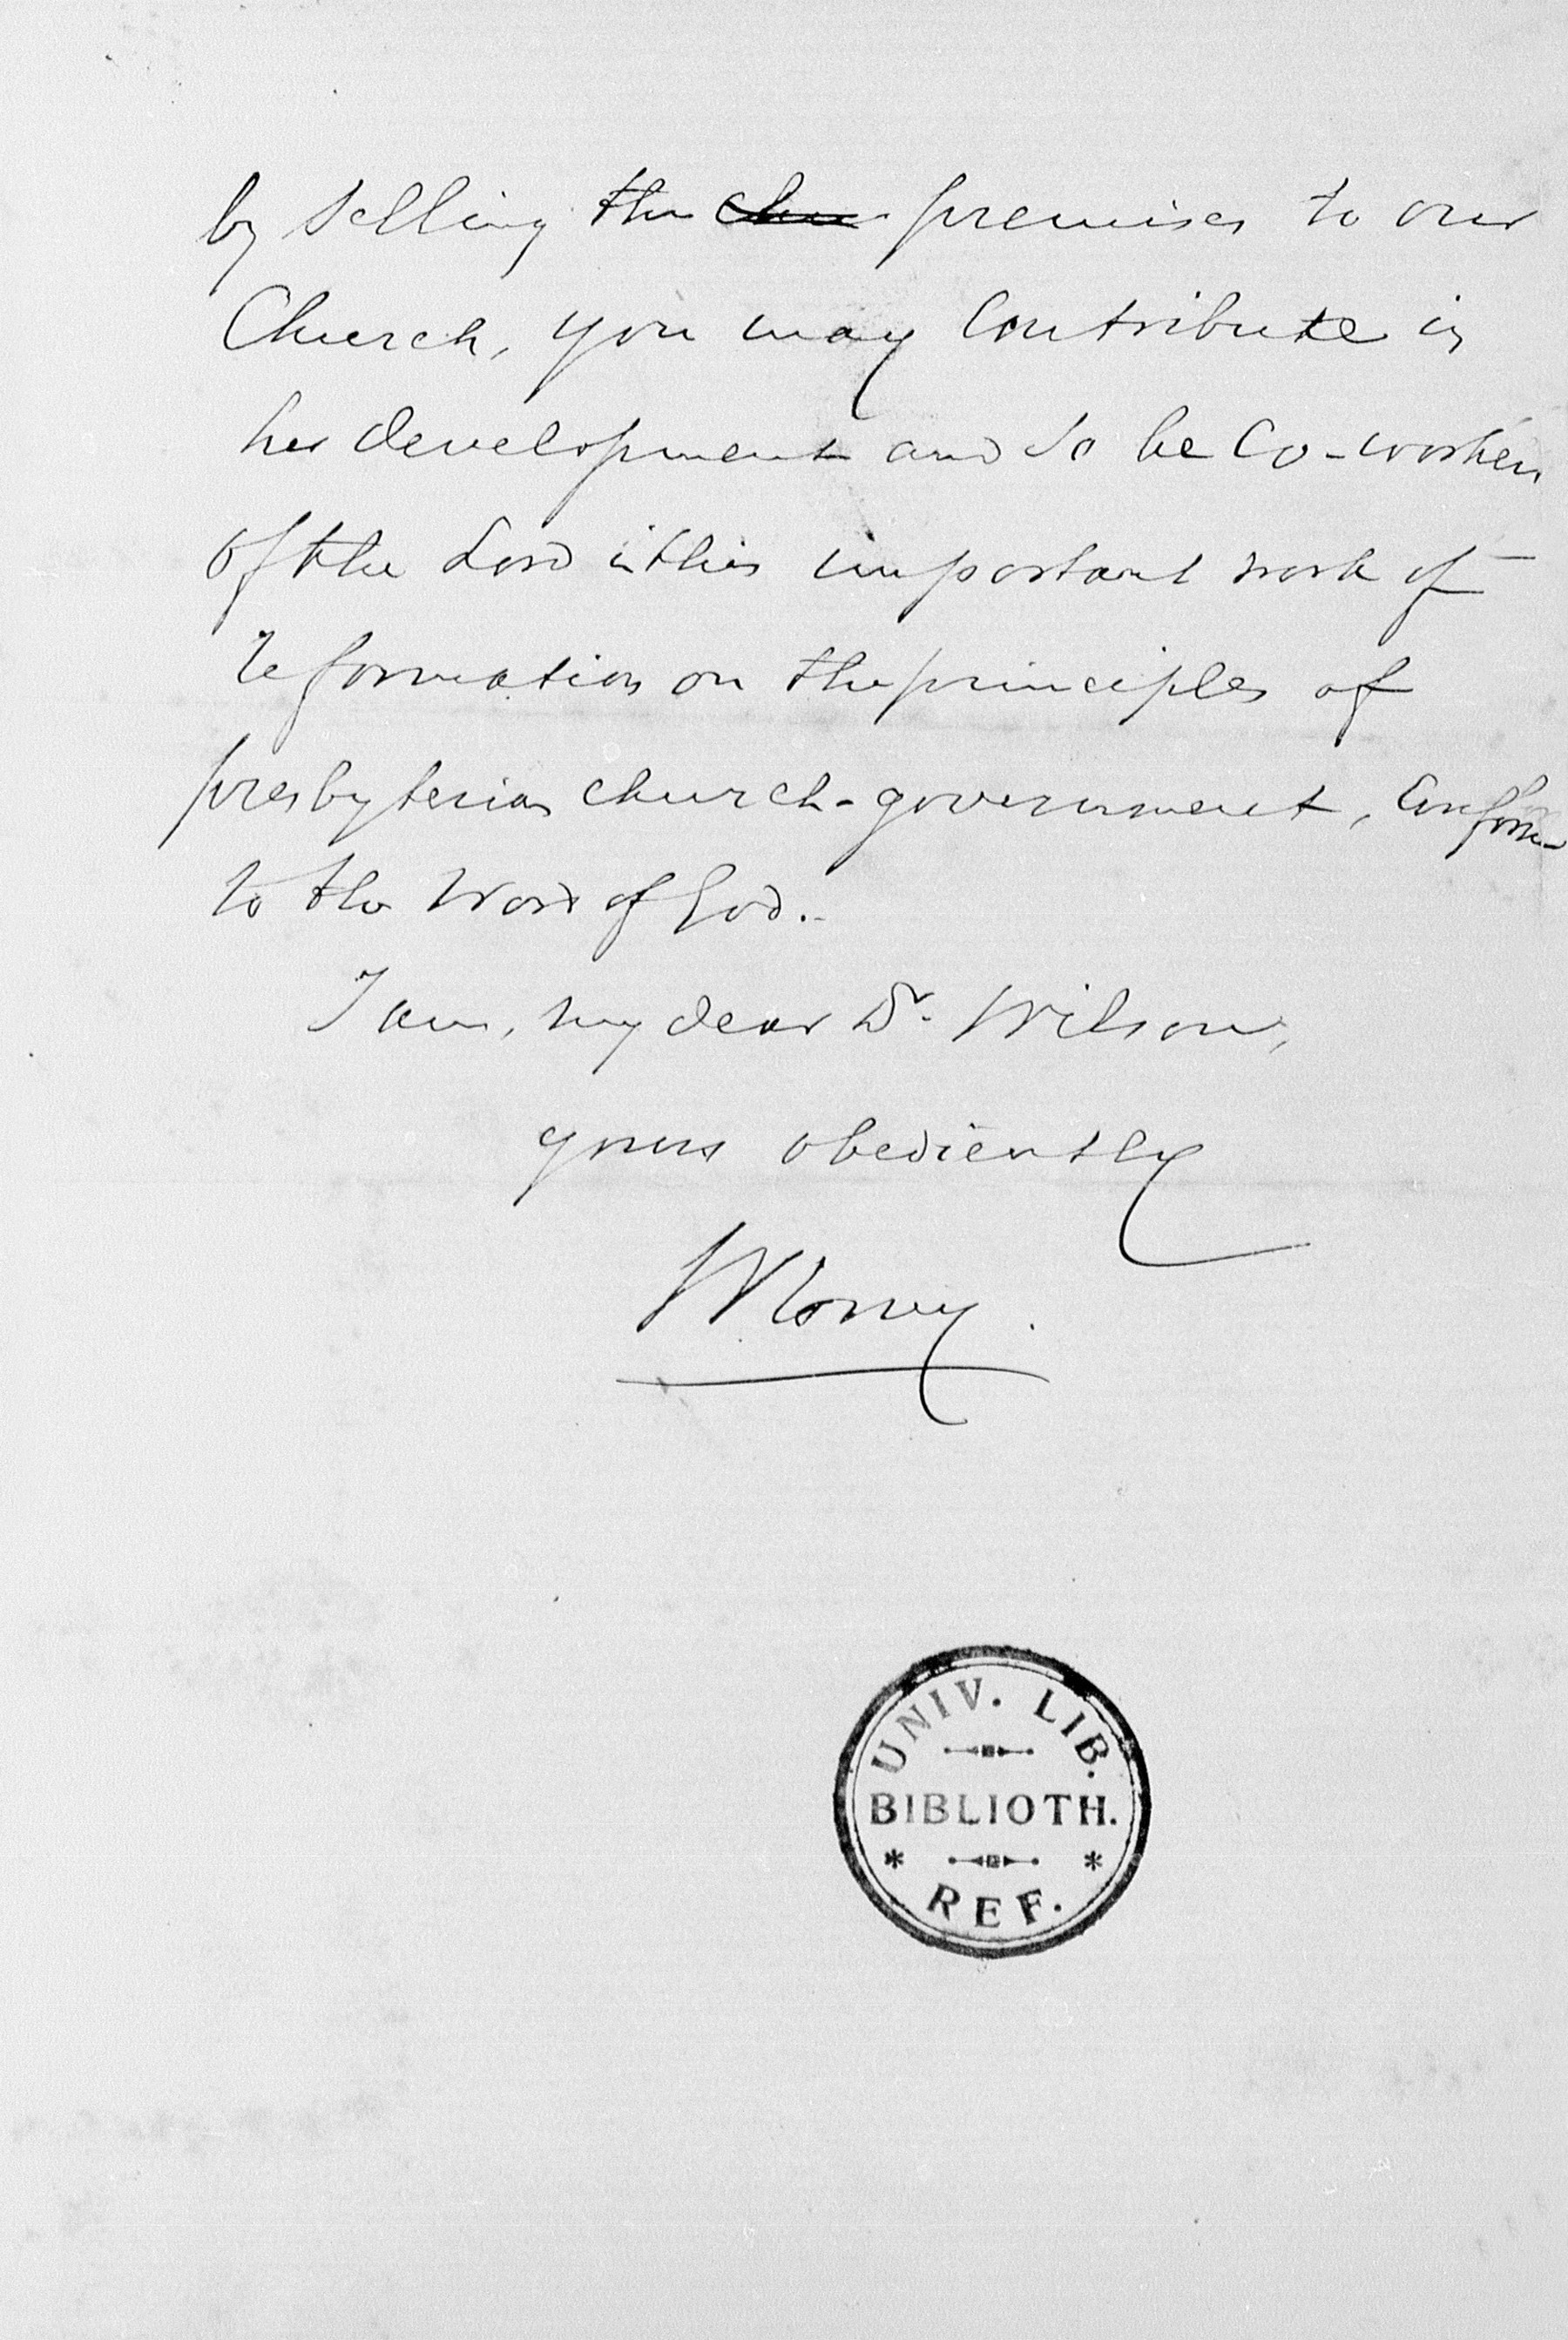 by selling the premises to our
Church, you may Contribute in
her development and so be Co-worker
of the Lord in this important work of
reformation on the principles of
presbyterian church-government, Conform
to the Word of God.
I am, my dear Dr. Wilson,
yours obediently
UNIV. LIB.
BIBLIOTH.
* *
REF.